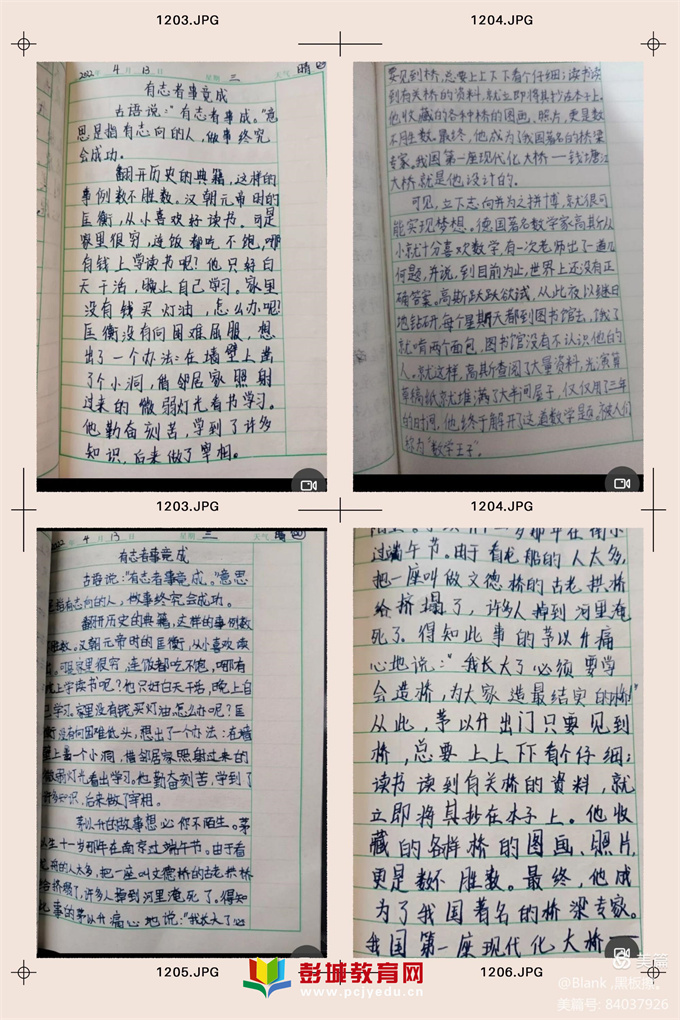 1203.JPG
1204.JPG
2022年4月13日 星期三 天气晴
有志者事竟成
古语说:“有志者事成。”意
思是指有志向的人,做事终究
会成功。
翻开历史的典籍,这样的
事例数不胜数。汉朝元帝时的
匡衡,从小喜欢好读书。可是
家里很穷,连饭都吃不饱,哪
有钱上学读书呢?他只好白
天干活,晚上自己学习。家里
没有钱买灯油,怎么办呢?
匡衡没有向困难屈服,想
出了一个办法:在墙壁上凿
了个小洞,借邻居家照射
过来的微弱灯光看书学习。
他勤奋刻苦,学到了许多
知识,后来做了宰相。
要见到桥,总要上上下下看个仔细;读书读
到有关桥的资料,就立即将其抄在本子上。
他收藏的各种桥的图画、照片,更是数
不胜数。最终,他成为了我国著名的桥梁
专家。我国第一座现代化大桥——钱塘江
大桥就是他设计的。
可见,立下志向并为之拼搏,就很可
能实现梦想。德国著名数学家高斯从
小就十分喜欢数学,有一次老师出了一道几
何题,并说,到目前为止,世界上还没有正
确答案。高斯跃跃欲试,从此夜以继日
地钻研,每个星期天都到图书馆去,饿了
就啃两个面包,图书馆没有不认识他的
人。就这样,高斯查阅了大量资料,光演算
草稿纸就堆满了大半间屋子,仅仅用了三年
的时间,他终于解开了这道数学题,被人们
称为“数学王子”。
1203.JPG
1204.JPG
2022年4月13日 星期三 天气晴
有志者事竟成
古语说:“有志者事竟成。”意思
是指有志向的人,做事终究会成功。
翻开历史的典籍,这样的事例数
胜数。汉朝元帝时的匡衡,从小喜欢读
可是家里很穷,连饭都吃不饱,哪有
上学读书呢?他只好白天干活,晚上自
己学习。家里没有钱买灯油怎么办呢?匡
衡没有向困难低头,想出了一个办法:在墙
壁上凿一个小洞,借邻居家照射过来的
微弱灯光看书学习。他勤奋刻苦,学到了
许多知识,后来做了宰相。
茅以升的故事想必你不陌生。茅
以升十一岁那年在南京过端午节。由于看
船的人太多,把一座叫文德桥的古老拱桥
给挤塌了,许多人掉到河里淹死了。得知
此事的茅以升痛心地说:“我长大了必
过端午节。由于看龙船的人太多,
把一座叫做文德桥的古老拱桥
给挤塌了,许多人掉到河里淹
死了。得知此事的茅以升痛
心地说:“我长大了必须要学
会造桥,为大家造最结实的桥!”
从此,茅以升出门只要见到
桥,总要上上下下看个仔细;
读书读到有关桥的资料,就
立即将其抄在本子上。他收
藏的各样桥的图画、照片,
更是数不胜数。最终,他成
为了我国著名的桥梁专家。
我国第一座现代化大桥——
1205.JPG
1206.JPG
彭城教育网
www.pcjyedu.cn
美篇
@Blank ,黑板擦,
美篇号: 84037926